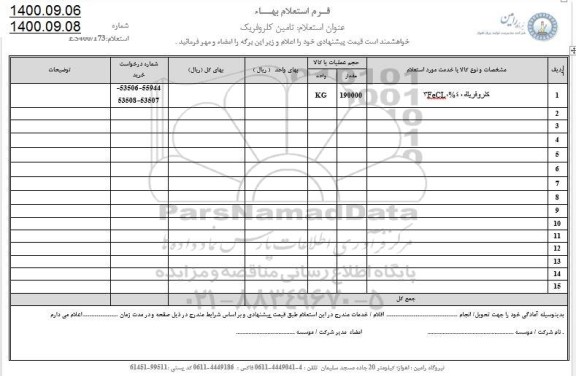 1400.09.06
1400.09.08
فرم استعلام بهاء
عنوان استعلام: تامین کلروفریک
شماره استعلام:
خواهشمند است قیمت پیشنهادی خود را اعلام و زیر این برگه را امضاء و مهر فرمائید.
ردیف
مشخصات و نوع کالا یا خدمت مورد استعلام
حجم عملیات یا کالا
مقدار
واحد
بهای واحد (ریال)
بهای کل (ریال)
شماره درخواست خرید
توضیحات
1
190000
KG
53506-55944-
53508-53507
2
3
4
5
6
7
8
9
10
11
12
13
14
15
جمع کل
ParsNamadData
پایگاه اطلاع رسانی مناقصه و مزایده
۰۲۱-۸۸۳۴۹۶۷۰-۵
بدینوسیله آمادگی خود را جهت تحویل/ انجام ................ اقلام / خدمات مندرج در این استعلام طبق قیمت پیشنهادی و بر اساس شرایط مندرج در ذیل صفحه و در مدت زمان ................ اعلام می دارم
. نام شرکت / موسسه ................
امضاء مدیر شرکت / موسسه ................
نیروگاه رامین : اهواز- کیلومتر 20 جاده مسجد سلیمان تلفن : 4-4449041-0611 فاکس : 4449186-0611 کد پستی: 99511-61451